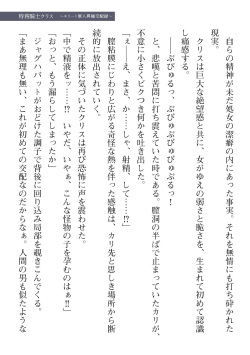 自らの精神が未だ処女の潔癖の内にあった事実。それを無情にも打ち砕かれた
現実。
クリスは巨大な絶望感と共に、女がゆえの弱さと脆さを、生まれて初めて認識
し痛感する。
と、悲嘆と苦悶に打ち震えていた時である。膣洞の半ばで止まっていたカリが、
不意に小さくビクつき何かを吐き出した。
「え――え、ま……さか、しゃ、射精、して……!?」
膣粘膜にじわりと広がる な熱を伴った感触は、カリ先と思しき場所から断
続的に放出されていく。
その正体に気づいたクリスは再び恐怖に声を震わせた。
「中で精液を……!? いやだ、いやぁ、こんな怪物の子を孕むのはぁ!!」
「おっと、もう漏らしてしまったか」
ジャグハバットがおどけた調子で背後に回り込み局部を覗きこんでくる。
「まあ無理も無い、これが初めての なのだからなぁ。人間の男も似たような